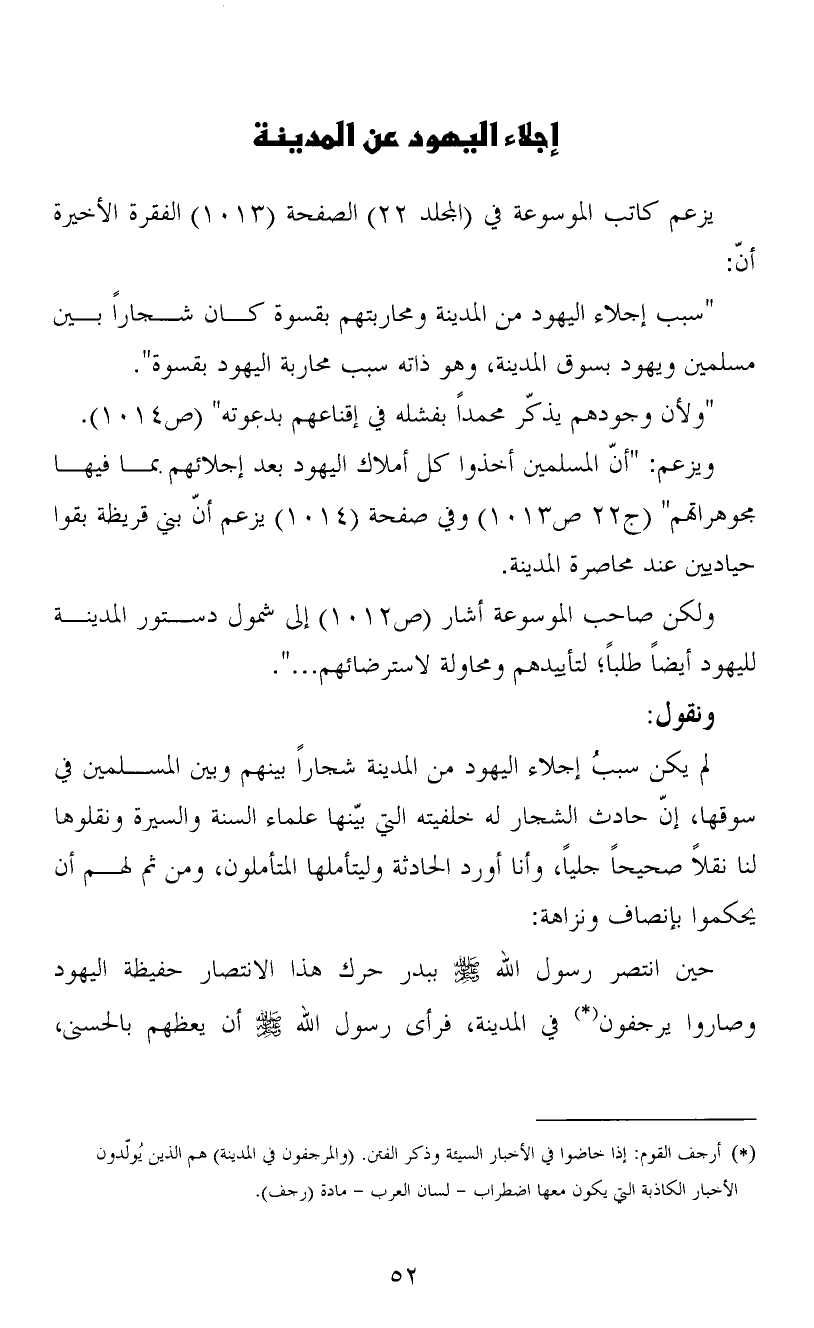 إجلاء اليهود عن المدينة
يزعم كاتب الموسوعة في (المجلد ٢٢) الصفحة (١٠١٣) الفقرة الأخيرة
أنّ:
"سبب إجلاء اليهود من المدينة ومحاربتهم بقسوة كان شجاراً بين
مسلمين ويهود بسوق المدينة، وهو ذاته سبب محاربة اليهود بقسوة".
"ولأن وجودهم يذكّر محمداً بفشله في إقناعهم بدعوته" (ص١٠١٤).
ويزعم: "أنّ المسلمين أخذوا كل أملاك اليهود بعد إجلائهم بما فيها
مجوهراتهم" (ج٢٢ ص١٠١٣) وفي صفحة (١٠١٤) يزعم أنّ بني قريظة بقوا
حياديين عند محاصرة المدينة.
ولكن صاحب الموسوعة أشار (ص١٠١٢) إلى شمول دستور المدينة
لليهود أيضاً طلباً؛ لتأييدهم ومحاولة لاسترضائهم...".
ونقول:
لم يكن سببُ إجلاء اليهود من المدينة شجاراً بينهم وبين المسلمين في
سوقها، إنّ حادث الشجار له خلفيته التي بيّنها علماء السنة والسيرة ونقلوها
لنا نقلاً صحيحاً جلياً، وأنا أورد الحادثة وليتأملها المتأملون، ومن ثم لهم أن
يحكموا بإنصاف ونزاهة:
حين انتصر رسول الله ﷺ ببدر حرك هذا الانتصار حفيظة اليهود
وصاروا يرجفون(*) في المدينة، فرأى رسول الله ﷺ أن يعظهم بالحسنى،
(*) أرجف القوم: إذا خاضوا في الأخبار السيئة وذكر الفتن. (والمرجفون في المدينة) هم الذين يُولّدون
الأخبار الكاذبة التي يكون معها اضطراب – لسان العرب – مادة (رجف).
٥٢